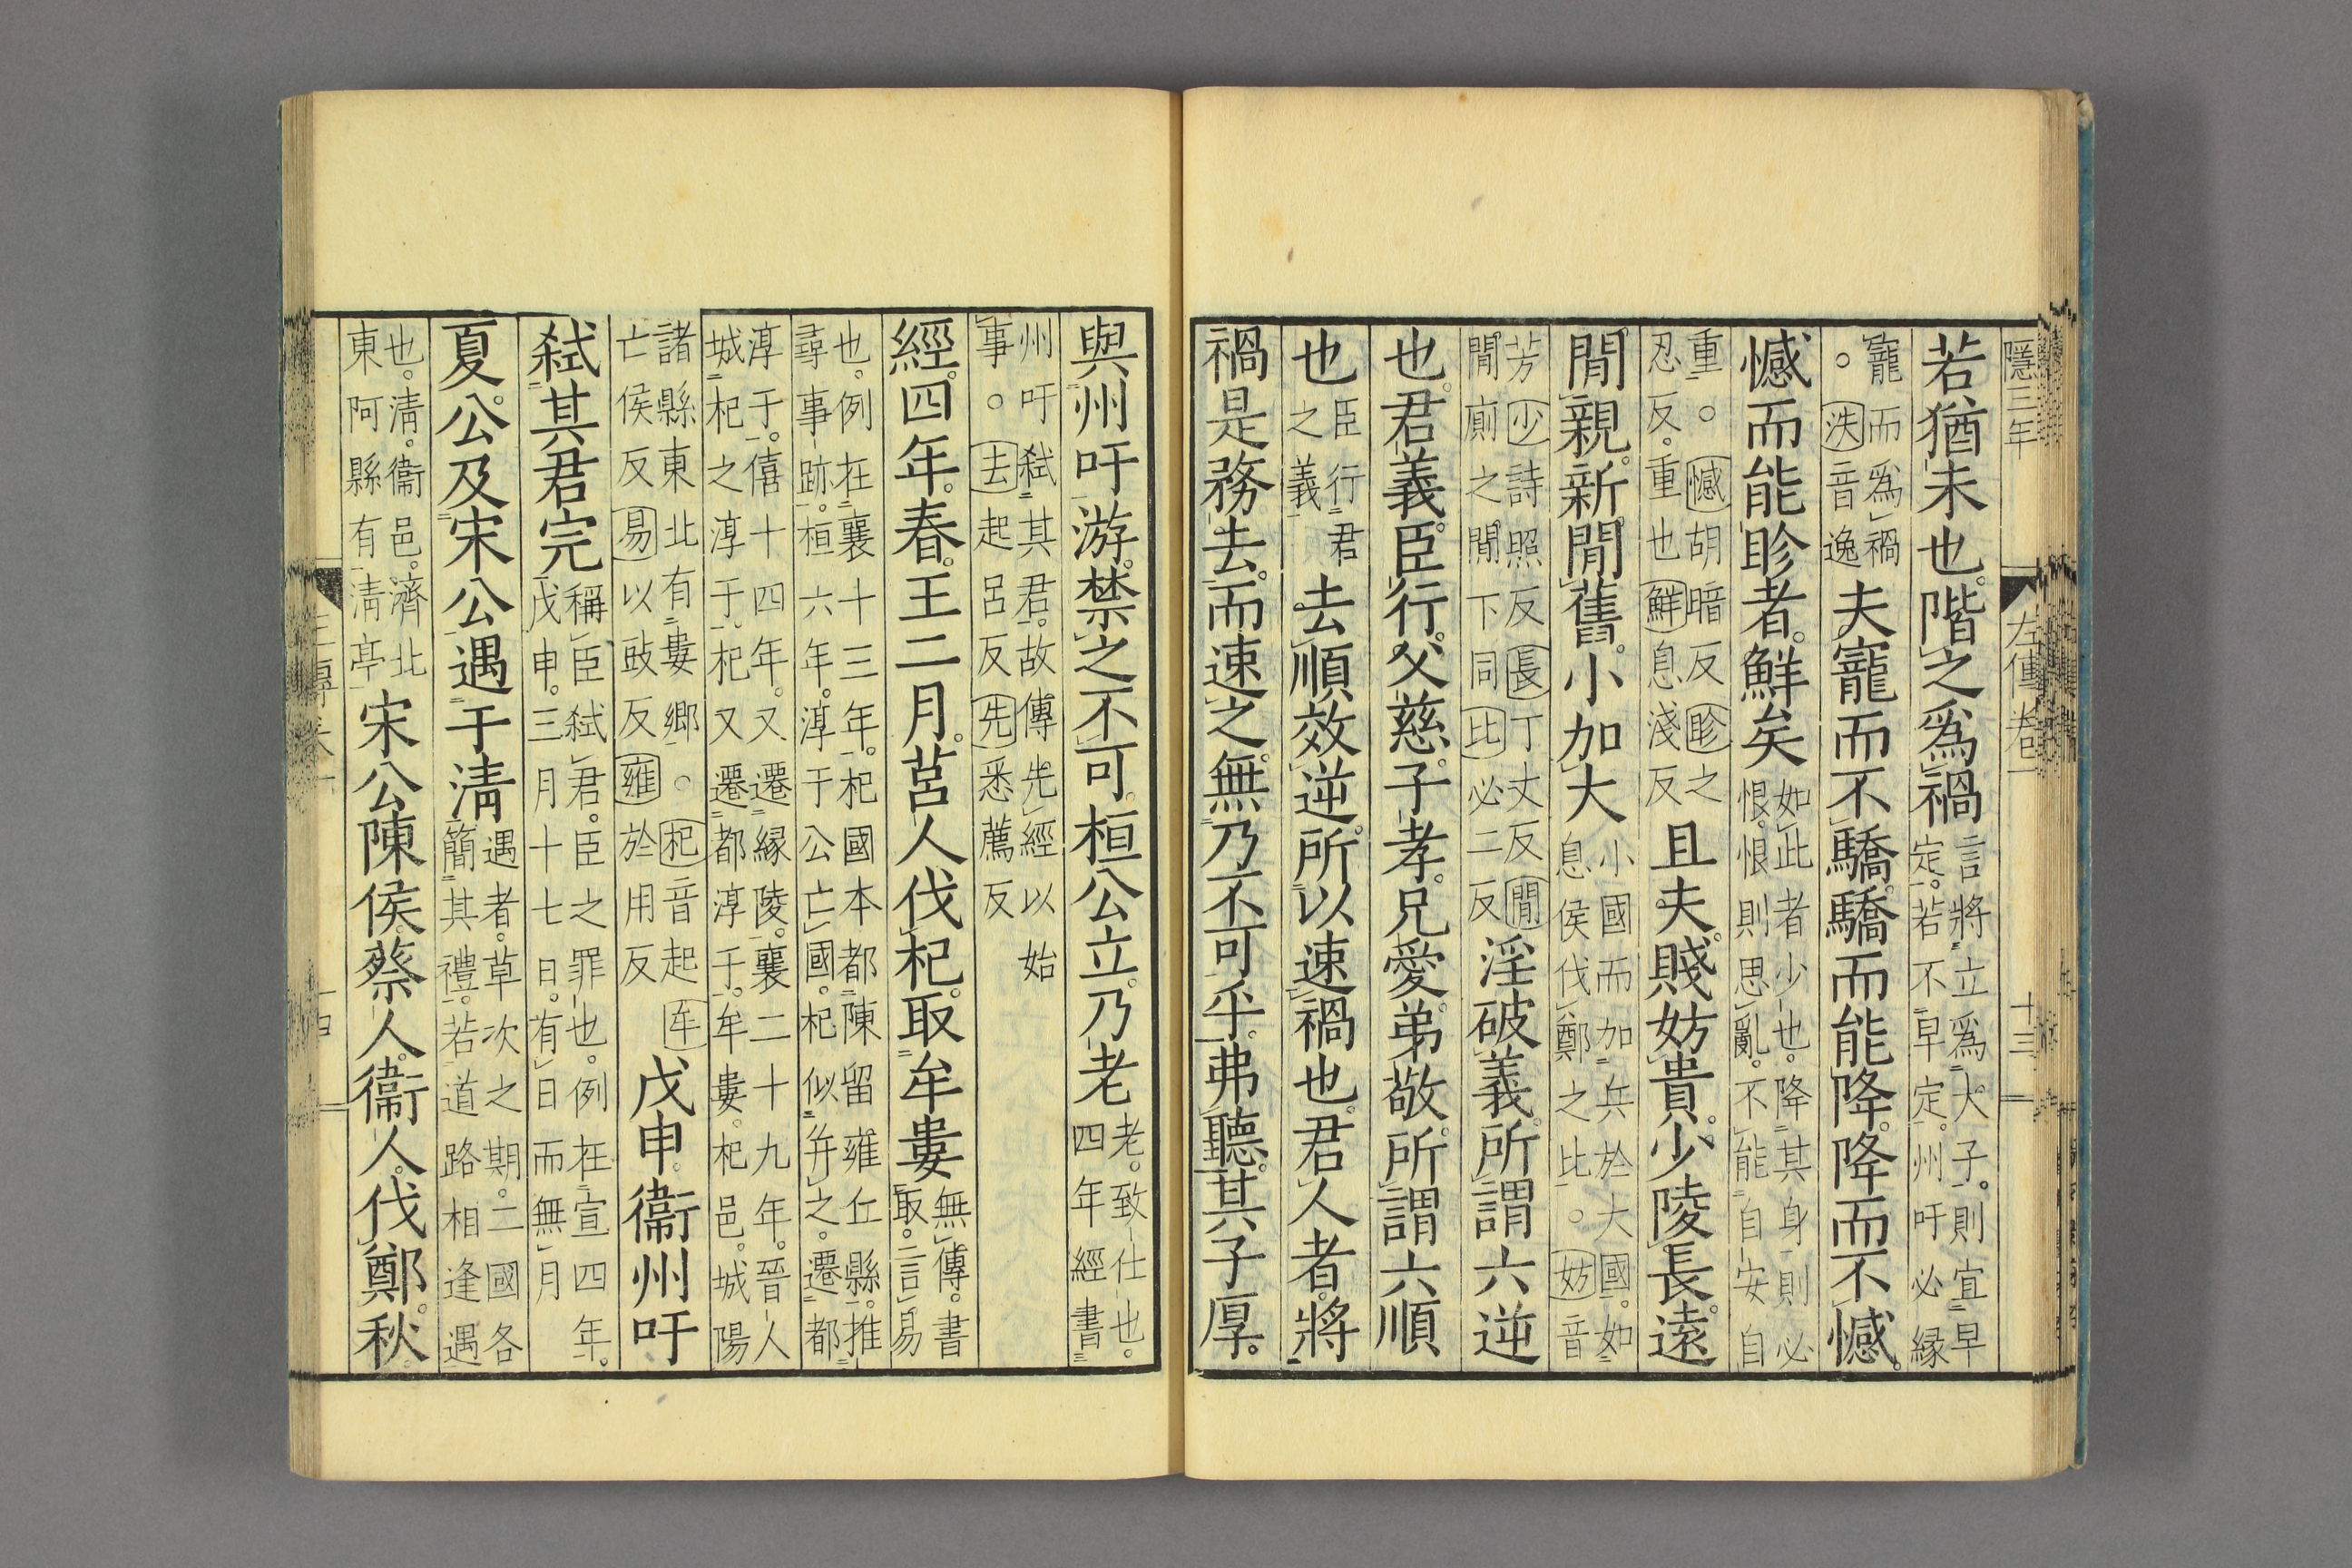 隱三年
左傳卷一
十三
若猶未也。階之爲禍
言將立爲大子。則宜早
定。若不早定。州吁必縁
寵而爲禍
。泆音逸
夫寵而不驕。驕而能降。降而不憾。
憾而能眕者。鮮矣
如此者少也。降其身則必
恨。恨則思亂。不能自安自
重。。憾胡暗反眕之
忍反。重也鮮息淺反
且夫。賤妨貴。少陵長。遠
閒親。新閒舊。小加大
小國而加兵於大國。如
息侯伐鄭之比。。妨音
芳少詩照反長丁丈反閒
閒廁之閒下同比必二反
淫破義。所謂六逆
也。君義。臣行。父慈。子孝。兄愛。弟敬。所謂六順
也
臣行君
之義
去順效逆。所以速禍也。君人者。將
禍是務去。而速之。無乃不可乎。弗聽。其子厚。
與州吁游。禁之不可。桓公立。乃老
老。致仕也。
四年經書
州吁弑其君。故傳先經以始
事。。去起呂反先悉薦反
經。四年。春。王二月。莒人伐杞。取牟婁
無傳。書
取。言易
也。例在襄十三年。杞國本都陳留雍丘縣。推
尋事跡。桓六年。淳于公亡國。杞似并之。遷都
淳于。僖十四年。又遷縁陵。襄二十九年。晉人
城杞之淳于。杞又遷都淳于。牟婁。杞邑。城陽
諸縣東北有婁鄉。。杞音起牟
亡侯反易以豉反雍於用反
戊申。衞州吁
弑其君完
稱臣弑君。臣之罪也。例在宣四年。
戊申。三月十七日。有日而無月
夏。公及宋公遇于清
遇者。草次之期。二國各
簡其禮。若道路相逢遇
也。清。衞邑。濟北
東阿縣有清亭
宋公陳侯。蔡人。衞人。伐鄭。秋。